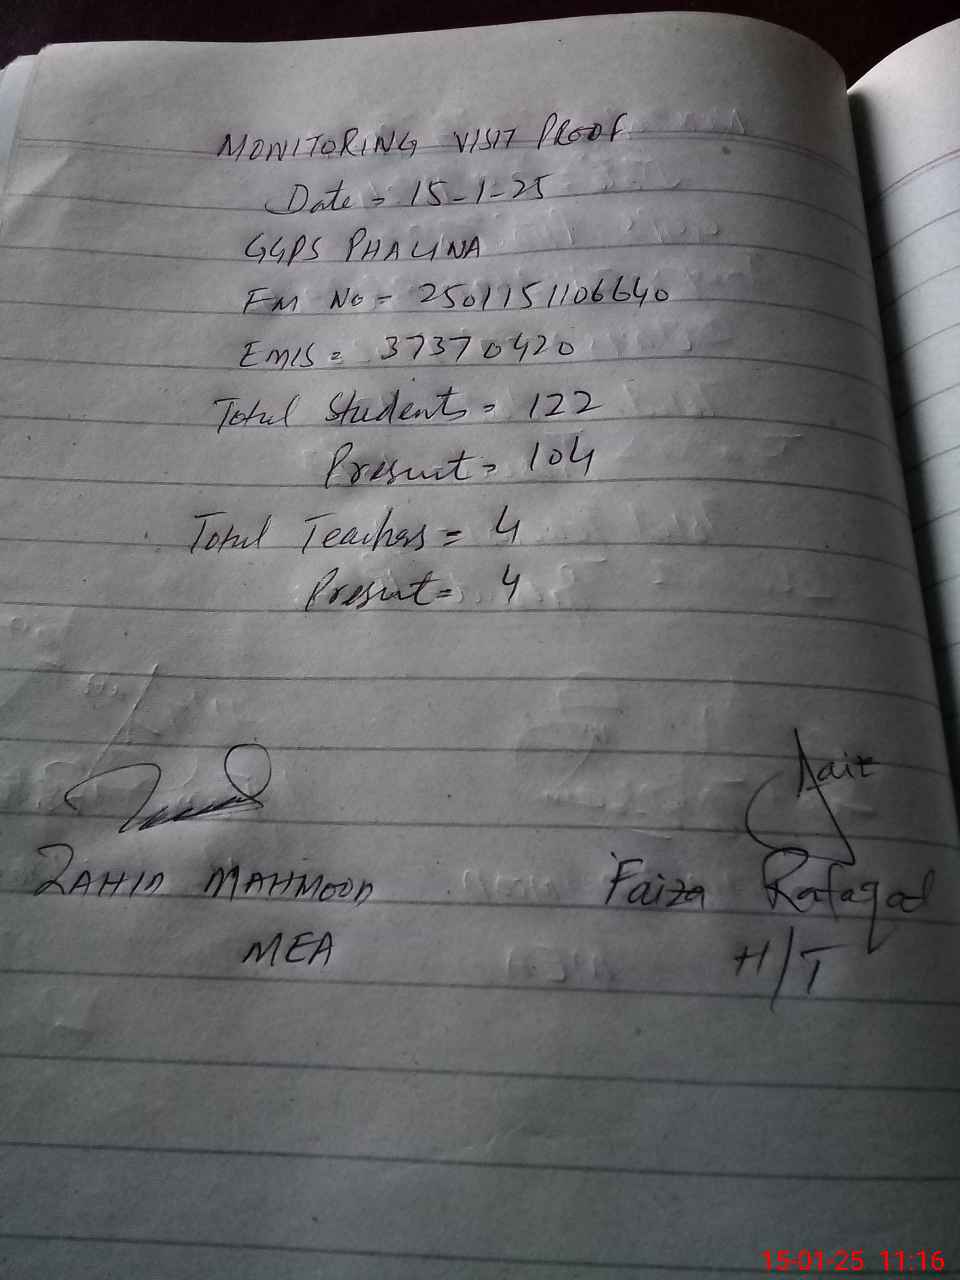 MONITORING VISIT PROOF
Date = 15-1-25
GGPS PHALINA
FM No = 2501151106640
EMIS = 37370420
Total Students = 122
Present = 104
Total Teachers = 4
Present = 4
Faiz
ZAHID MAHMOOD
Faiza Rafaqat
MEA
H/T
15-01-25 11:16